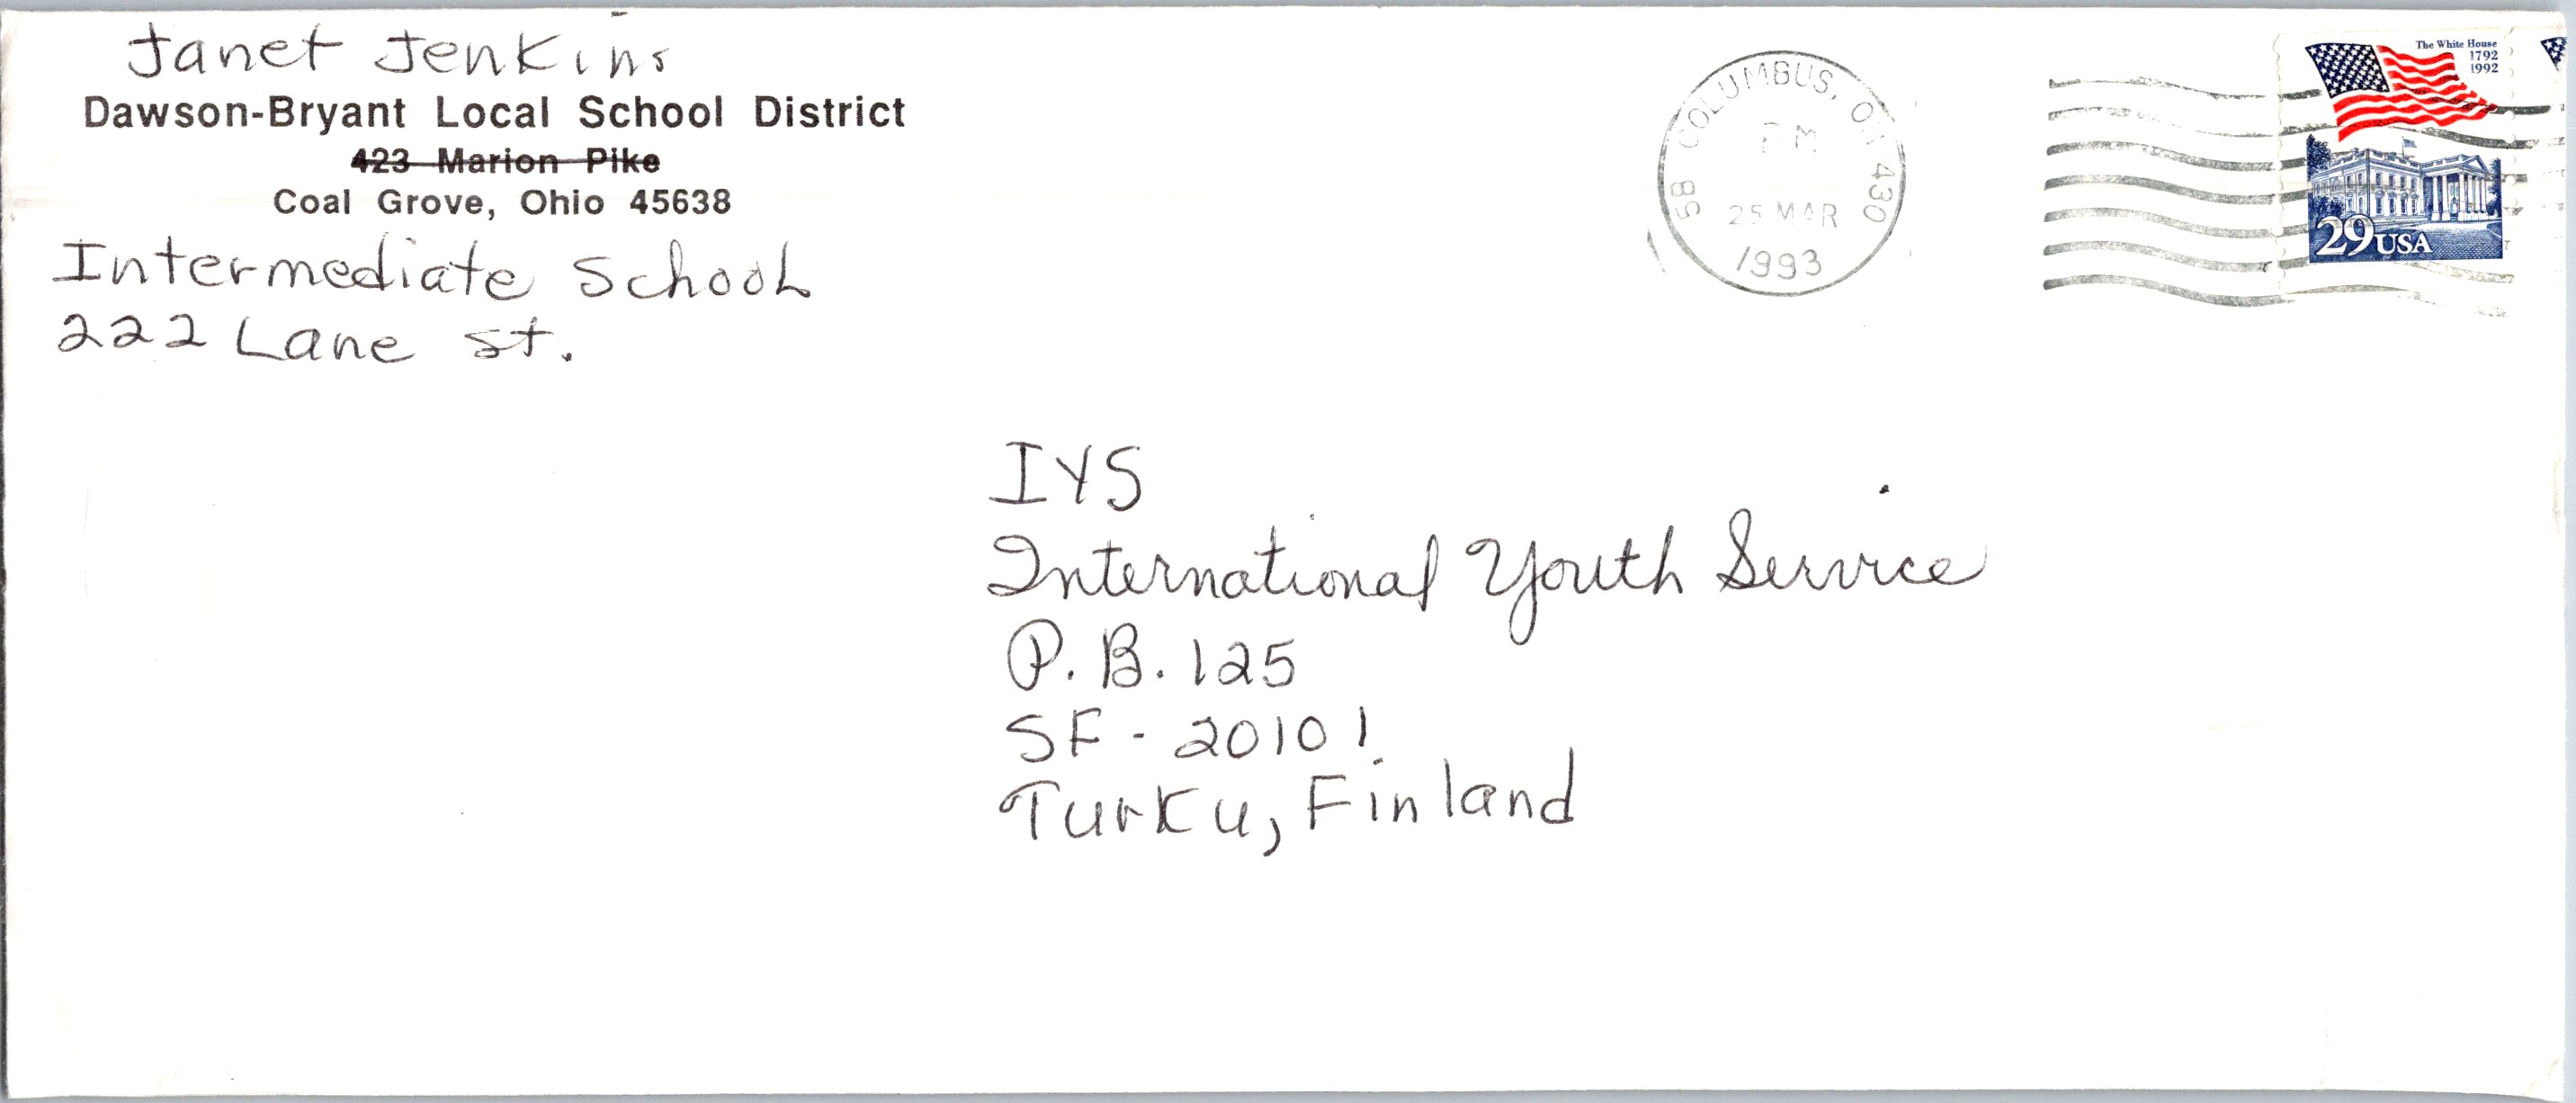 Janet Jenkins
Dawson-Bryant Local School District
423 Marion Pike
Coal Grove, Ohio 45638
Intermediate School
222 Lane St.
SB COLUMBUS, OH 430
PM
25 MAR
1993
The White House
1792
1992
29 USA
IYS
International Youth Service
P.B. 125
SF - 20101
Turku, Finland